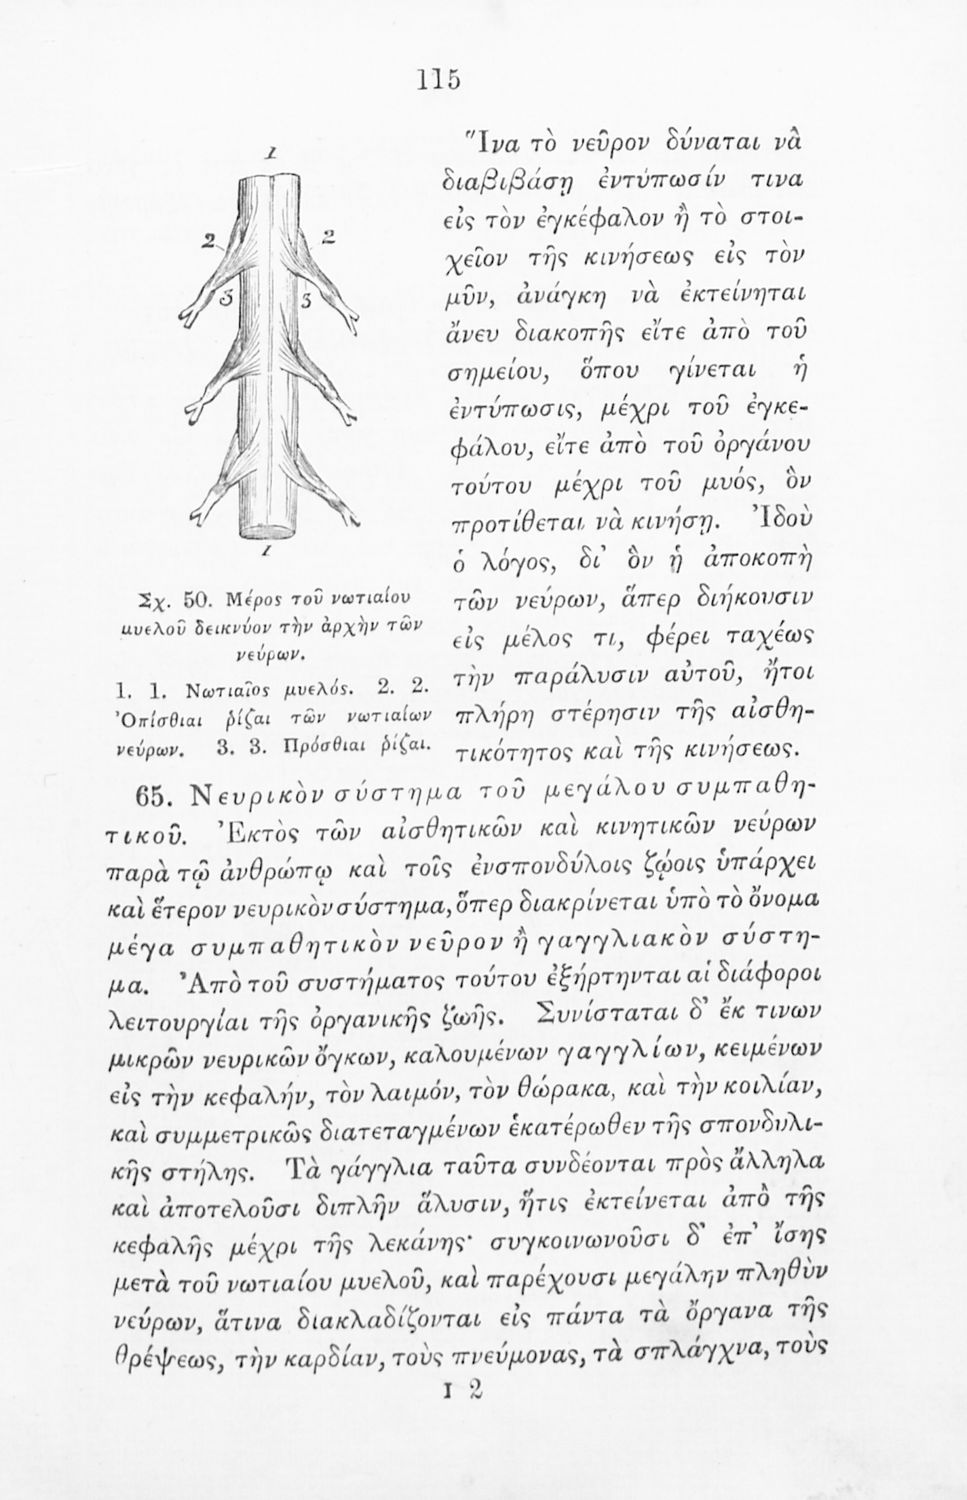 115
1
2 2
3 3
1
Σχ. 50. Μέρος τοῦ νωτιαίου
μυελοῦ δεικνύον τὴν ἀρχὴν τῶν
νεύρων.
1. 1. Νωτιαῖος μυελός. 2. 2.
Ὀπίσθιαι ῥίζαι τῶν νωτιαίων
νεύρων. 3. 3. Πρόσθιαι ῥίζαι.
Ἵνα τὸ νεῦρον δύναται νὰ
διαβιβάσῃ ἐντύπωσίν τινα
εἰς τὸν ἐγκέφαλον ἢ τὸ στοι-
χεῖον τῆς κινήσεως εἰς τὸν
μῦν, ἀνάγκη νὰ ἐκτείνηται
ἄνευ διακοπῆς εἴτε ἀπὸ τοῦ
σημείου, ὅπου γίνεται ἡ
ἐντύπωσις, μέχρι τοῦ ἐγκε-
φάλου, εἴτε ἀπὸ τοῦ ὀργάνου
τούτου μέχρι τοῦ μυός, ὃν
προτίθεται νὰ κινήσῃ. Ἰδοὺ
ὁ λόγος, δι' ὃν ἡ ἀποκοπὴ
τῶν νεύρων, ἅπερ διήκουσιν
εἰς μέλος τι, φέρει ταχέως
τὴν παράλυσιν αὐτοῦ, ἤτοι
πλήρη στέρησιν τῆς αἰσθη-
τικότητος καὶ τῆς κινήσεως.
65. Νευρικὸν σύστημα τοῦ μεγάλου συμπαθη-
τικοῦ. Ἐκτὸς τῶν αἰσθητικῶν καὶ κινητικῶν νεύρων
παρὰ τῷ ἀνθρώπῳ καὶ τοῖς ἐνσπονδύλοις ζῴοις ὑπάρχει
καὶ ἕτερον νευρικὸν σύστημα, ὅπερ διακρίνεται ὑπὸ τὸ ὄνομα
μέγα συμπαθητικὸν νεῦρον ἢ γαγγλιακὸν σύστη-
μα. Ἀπὸ τοῦ συστήματος τούτου ἐξήρτηνται αἱ διάφοροι
λειτουργίαι τῆς ὀργανικῆς ζωῆς. Συνίσταται δ' ἔκ τινων
μικρῶν νευρικῶν ὄγκων, καλουμένων γαγγλίων, κειμένων
εἰς τὴν κεφαλήν, τὸν λαιμόν, τὸν θώρακα, καὶ τὴν κοιλίαν,
καὶ συμμετρικῶς διατεταγμένων ἑκατέρωθεν τῆς σπονδυλι-
κῆς στήλης. Τὰ γάγγλια ταῦτα συνδέονται πρὸς ἄλληλα
καὶ ἀποτελοῦσι διπλῆν ἅλυσιν, ἥτις ἐκτείνεται ἀπὸ τῆς
κεφαλῆς μέχρι τῆς λεκάνης· συγκοινωνοῦσι δ' ἐπ' ἴσης
μετὰ τοῦ νωτιαίου μυελοῦ, καὶ παρέχουσι μεγάλην πληθὺν
νεύρων, ἅτινα διακλαδίζονται εἰς πάντα τὰ ὄργανα τῆς
θρέψεως, τὴν καρδίαν, τοὺς πνεύμονας, τὰ σπλάγχνα, τοὺς
I 2